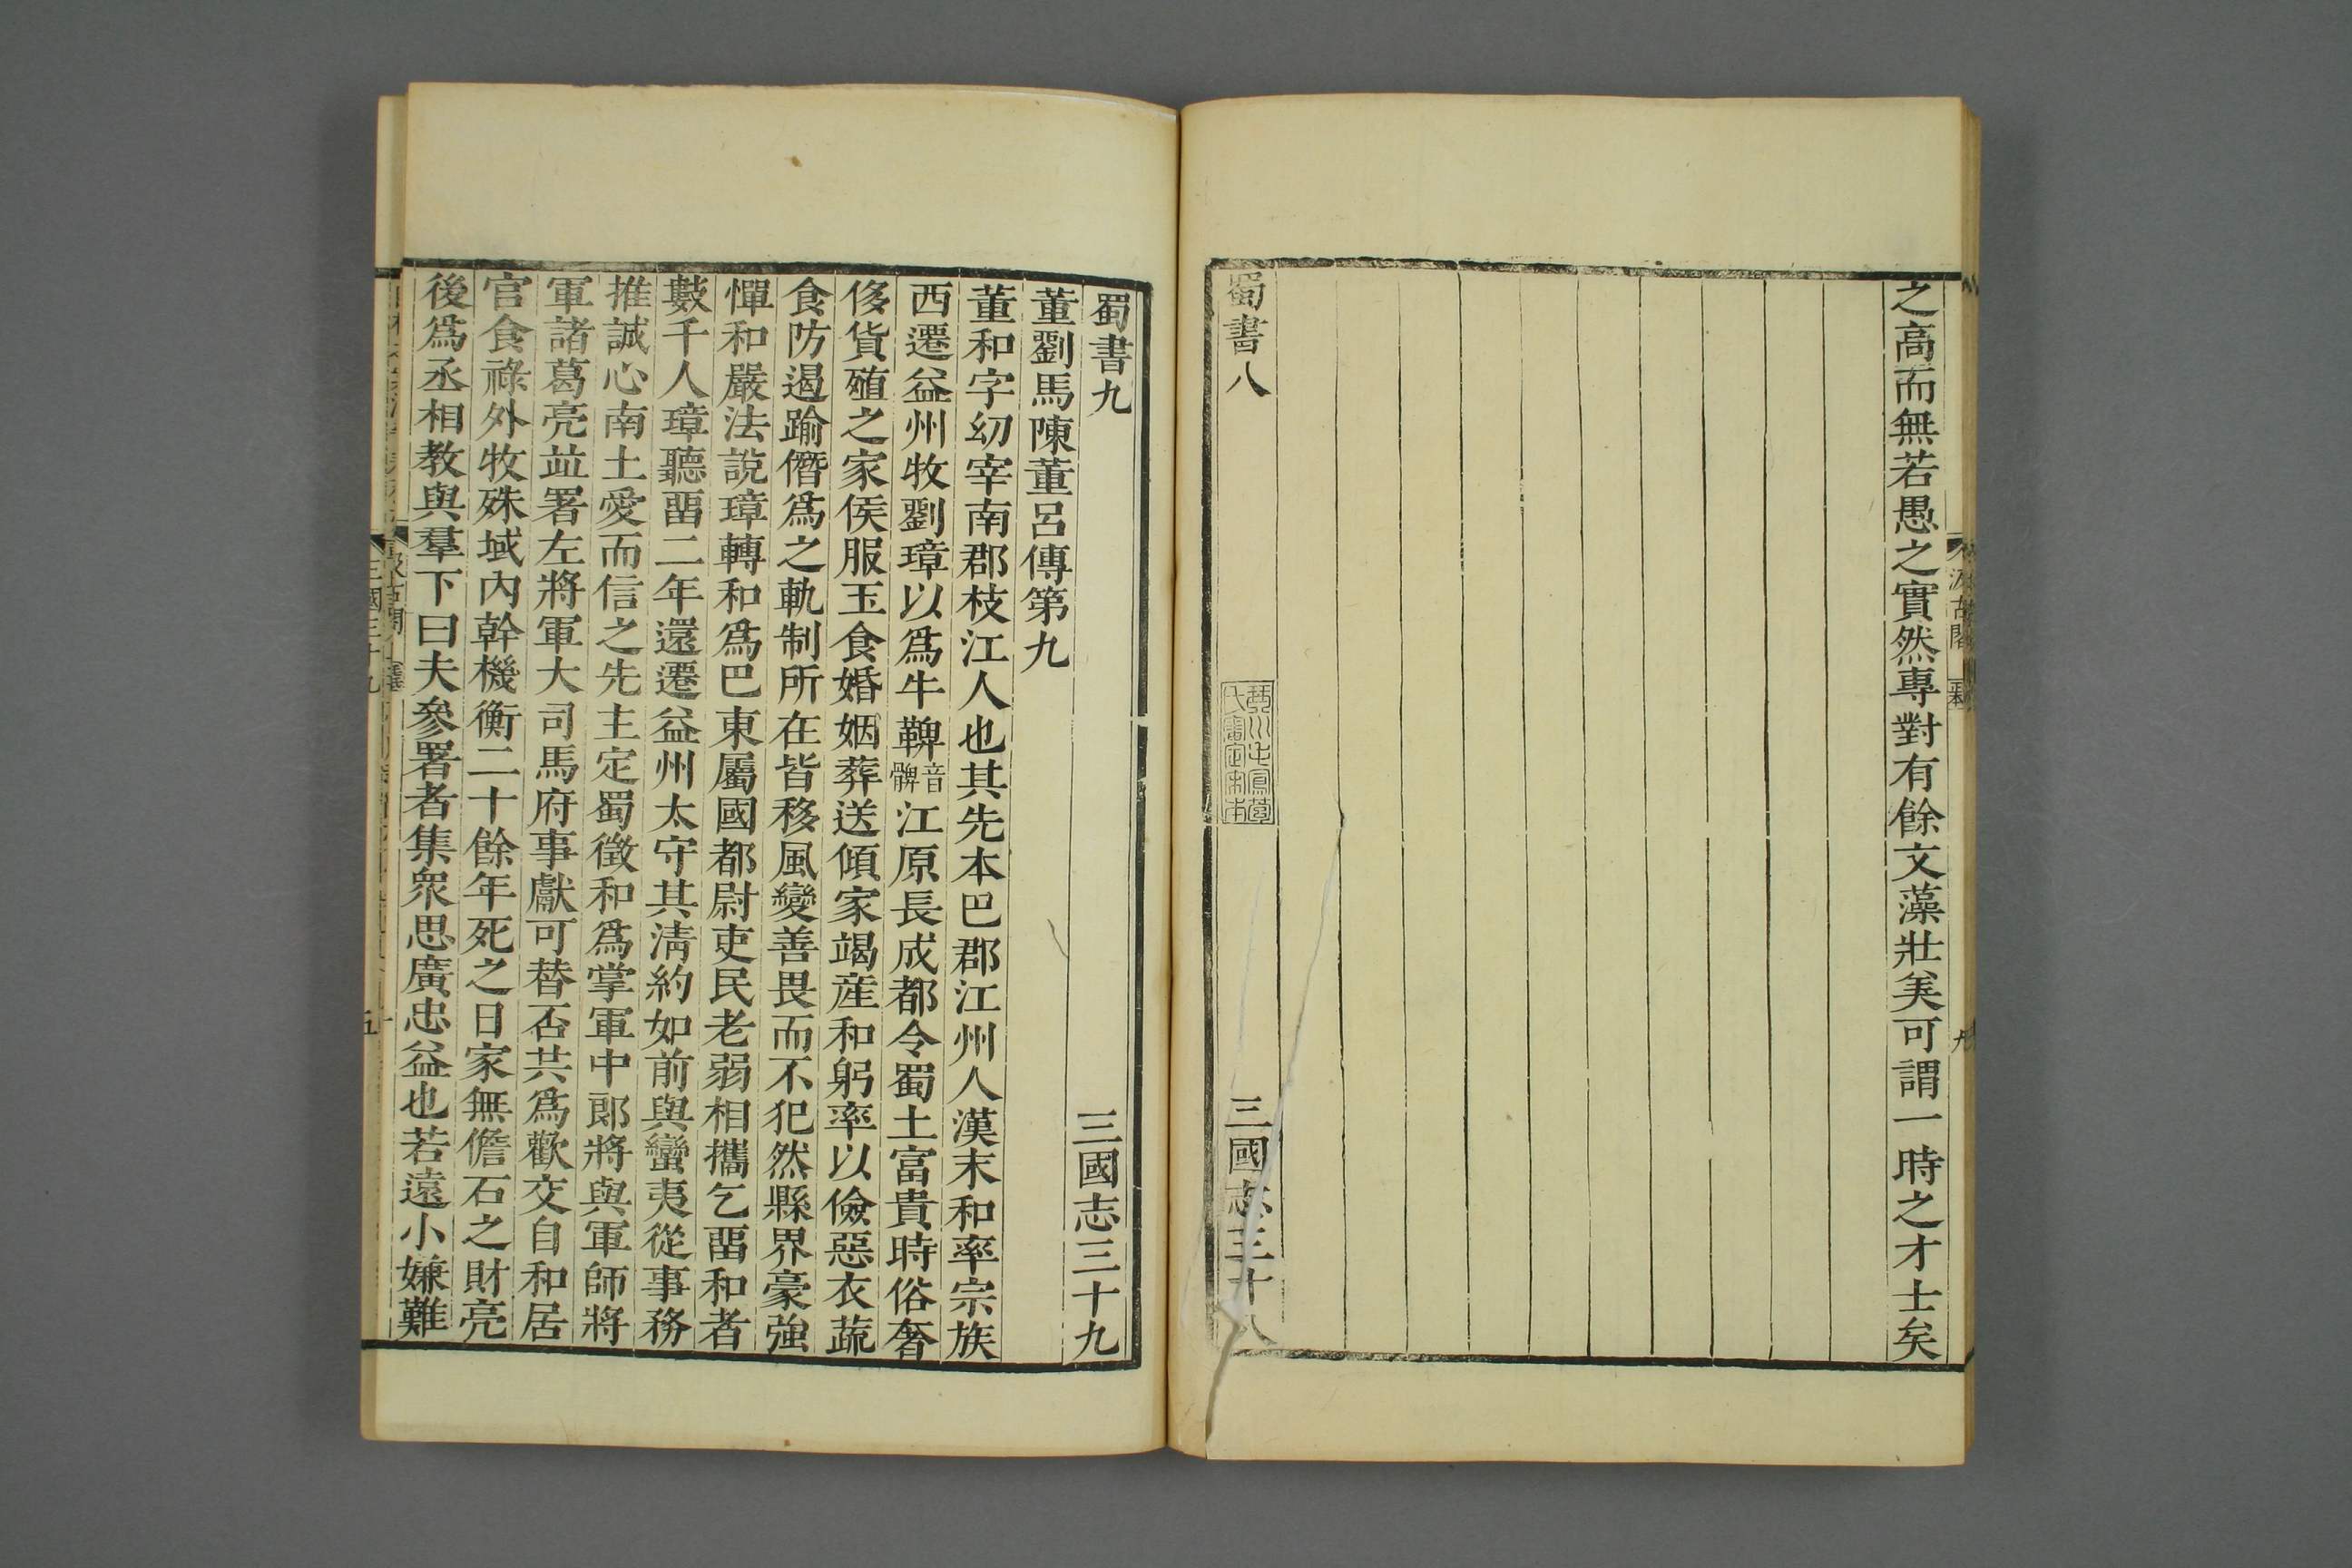 之高而無若愚之實然專對有餘文藻壯美可謂一時之才士矣
蜀書八 三國志三十八
蜀書九 三國志三十九
董劉馬陳董呂傳第九
董和字幼宰南郡枝江人也其先本巴郡江州人漢末和率宗族
西遷益州牧劉璋以爲牛鞞音髀江原長成都令蜀土富貴時俗奢
侈貨殖之家侯服玉食婚姻葬送傾家竭產和躬率以儉惡衣蔬
食防遏踰僭爲之軌制所在皆移風變善畏而不犯然縣界豪強
憚和嚴法說璋轉和爲巴東屬國都尉吏民老弱相攜乞畱和者
數千人璋聽畱二年還遷益州太守其清約如前與蠻夷從事務
推誠心南土愛而信之先主定蜀徵和爲掌軍中郎將與軍師將
軍諸葛亮竝署左將軍大司馬府事獻可替否共爲歡交自和居
官食祿外牧殊域內幹機衡二十餘年死之日家無儋石之財亮
後爲丞相教與羣下曰夫參署者集衆思廣忠益也若遠小嫌難